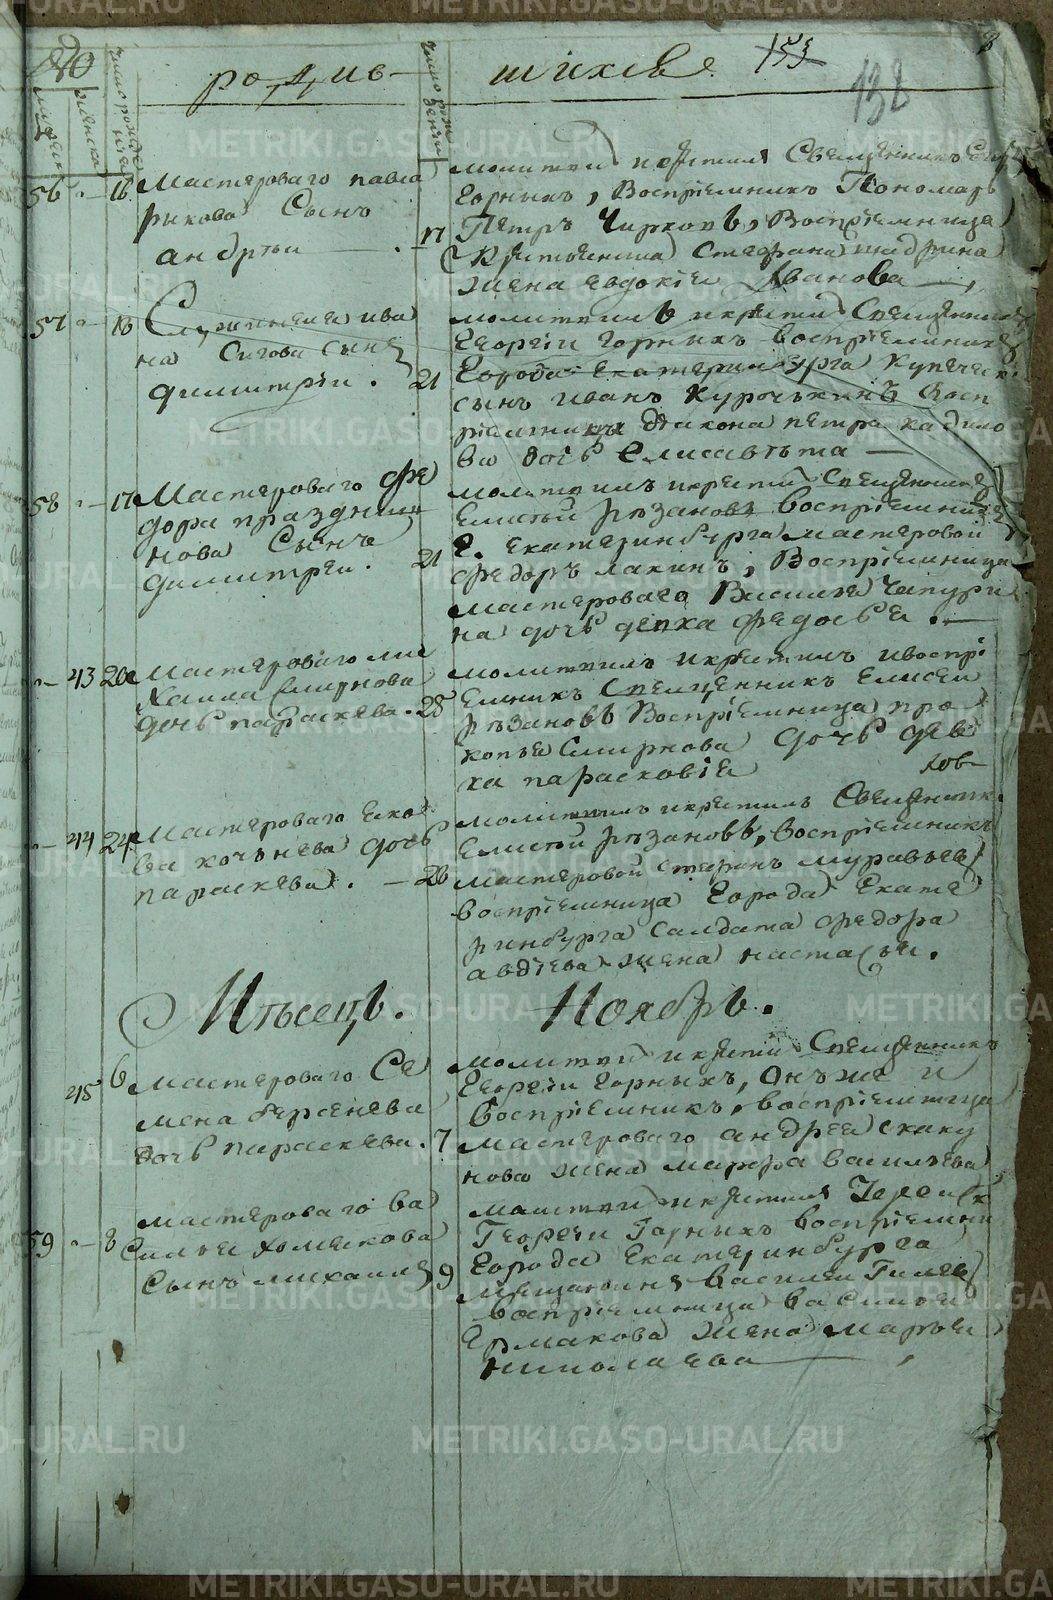 METRIKI.GASO-URAL.RU
родив
шихсѧ.
153
132
числорождения
число рож
дения
мужеска
женска
56
16
Мастероваго павла
рыкова Сынъ
андреи
17
молитвил и крѣтил Священникъ
Горныхъ, Воспріемникъ Пономарь
Петръ Чирковъ, Воспріемница
жена евдокіѧ Иванова
57
16
Служителѧ ива
на Сигова сынъ
димитріи.
21
молитвилъ и крѣти Священникъ
Георгіи Горныхъ воспріемникъ
Города Екатеринбурга купечески
сынъ иванъ Курочькинъ восп
ріемница діѧкона петра кадило
ва дочь Елисавѣта
58
17
Мастероваго Фе
дора праздни
кова Сынъ
димитреи.
21
молитвилъ и крѣти Священникъ
Елисѣй рѣзановъ воспріемникъ
Г. Екатеринбурга мастеровой
федоръ лакинъ, Воспріемница
мастероваго Василья Чипури
на дочь девка федосьѧ.
43
20
мастероваго ми
хаила Смирнова
дочь параскева.
25
молитвилъ и крѣтилъ и воспрі
емникъ Священникъ Елисеи
рѣзановъ Воспріемница про
копьѧ Смирнова дочь дев
ка парасковіѧ
44
24
Мастероваго ѧко
ва кочьнева дочь
параскева.
26
молитвилъ и крѣтилъ Священникъ
Елисѣй рѣзановъ, воспріемникъ
мастеровой степанъ муравьевъ
воспріемница Города Екате
ринбурга салдата федора
авдіева жена настасьѧ.
Мѣсецъ.
Ноябрь.
45
6
мастероваго Се
мена берсенева
дочь параскева.
7
молитвил и крѣти Священникъ
Георгіи Горныхъ, онъ же и
воспріемникъ, воспріемница
мастероваго андреѧ скаку
нова жена марфа васильева
59
8
мастероваго ва
силья хомѧкова
сынъ михаилъ
9
молитвил и крѣтил Иереи
Георгіи Горныхъ воспріемни
Города Екатеринбурга
мещанинъ василеи Гилевъ
воспріемница василья
Ермакова жена марьѧ
николаева